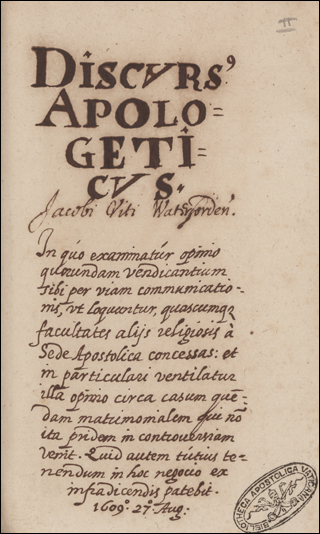 DISCVRS⁹
APOLO=
GETI=
CVS.
Jacobi Viti Waterforden.
In quo examinatur opinio
quorundam vendicantium
sibi per viam communicatio-
nis, vt loquuntur, quascumq;
facultates alijs religiosis à
Sede Apostolica concessas: et
in particulari ventilatur
illa opinio circa casum quē-
dam matrimonialem qui nō
ita pridem in controuersiam
venit. Quid autem tutius te-
nendum in hoc negocio ex
infradicendis patebit.
1609. 27. Aug:
BIBLIOTHECA APOSTOLICA VATICANA